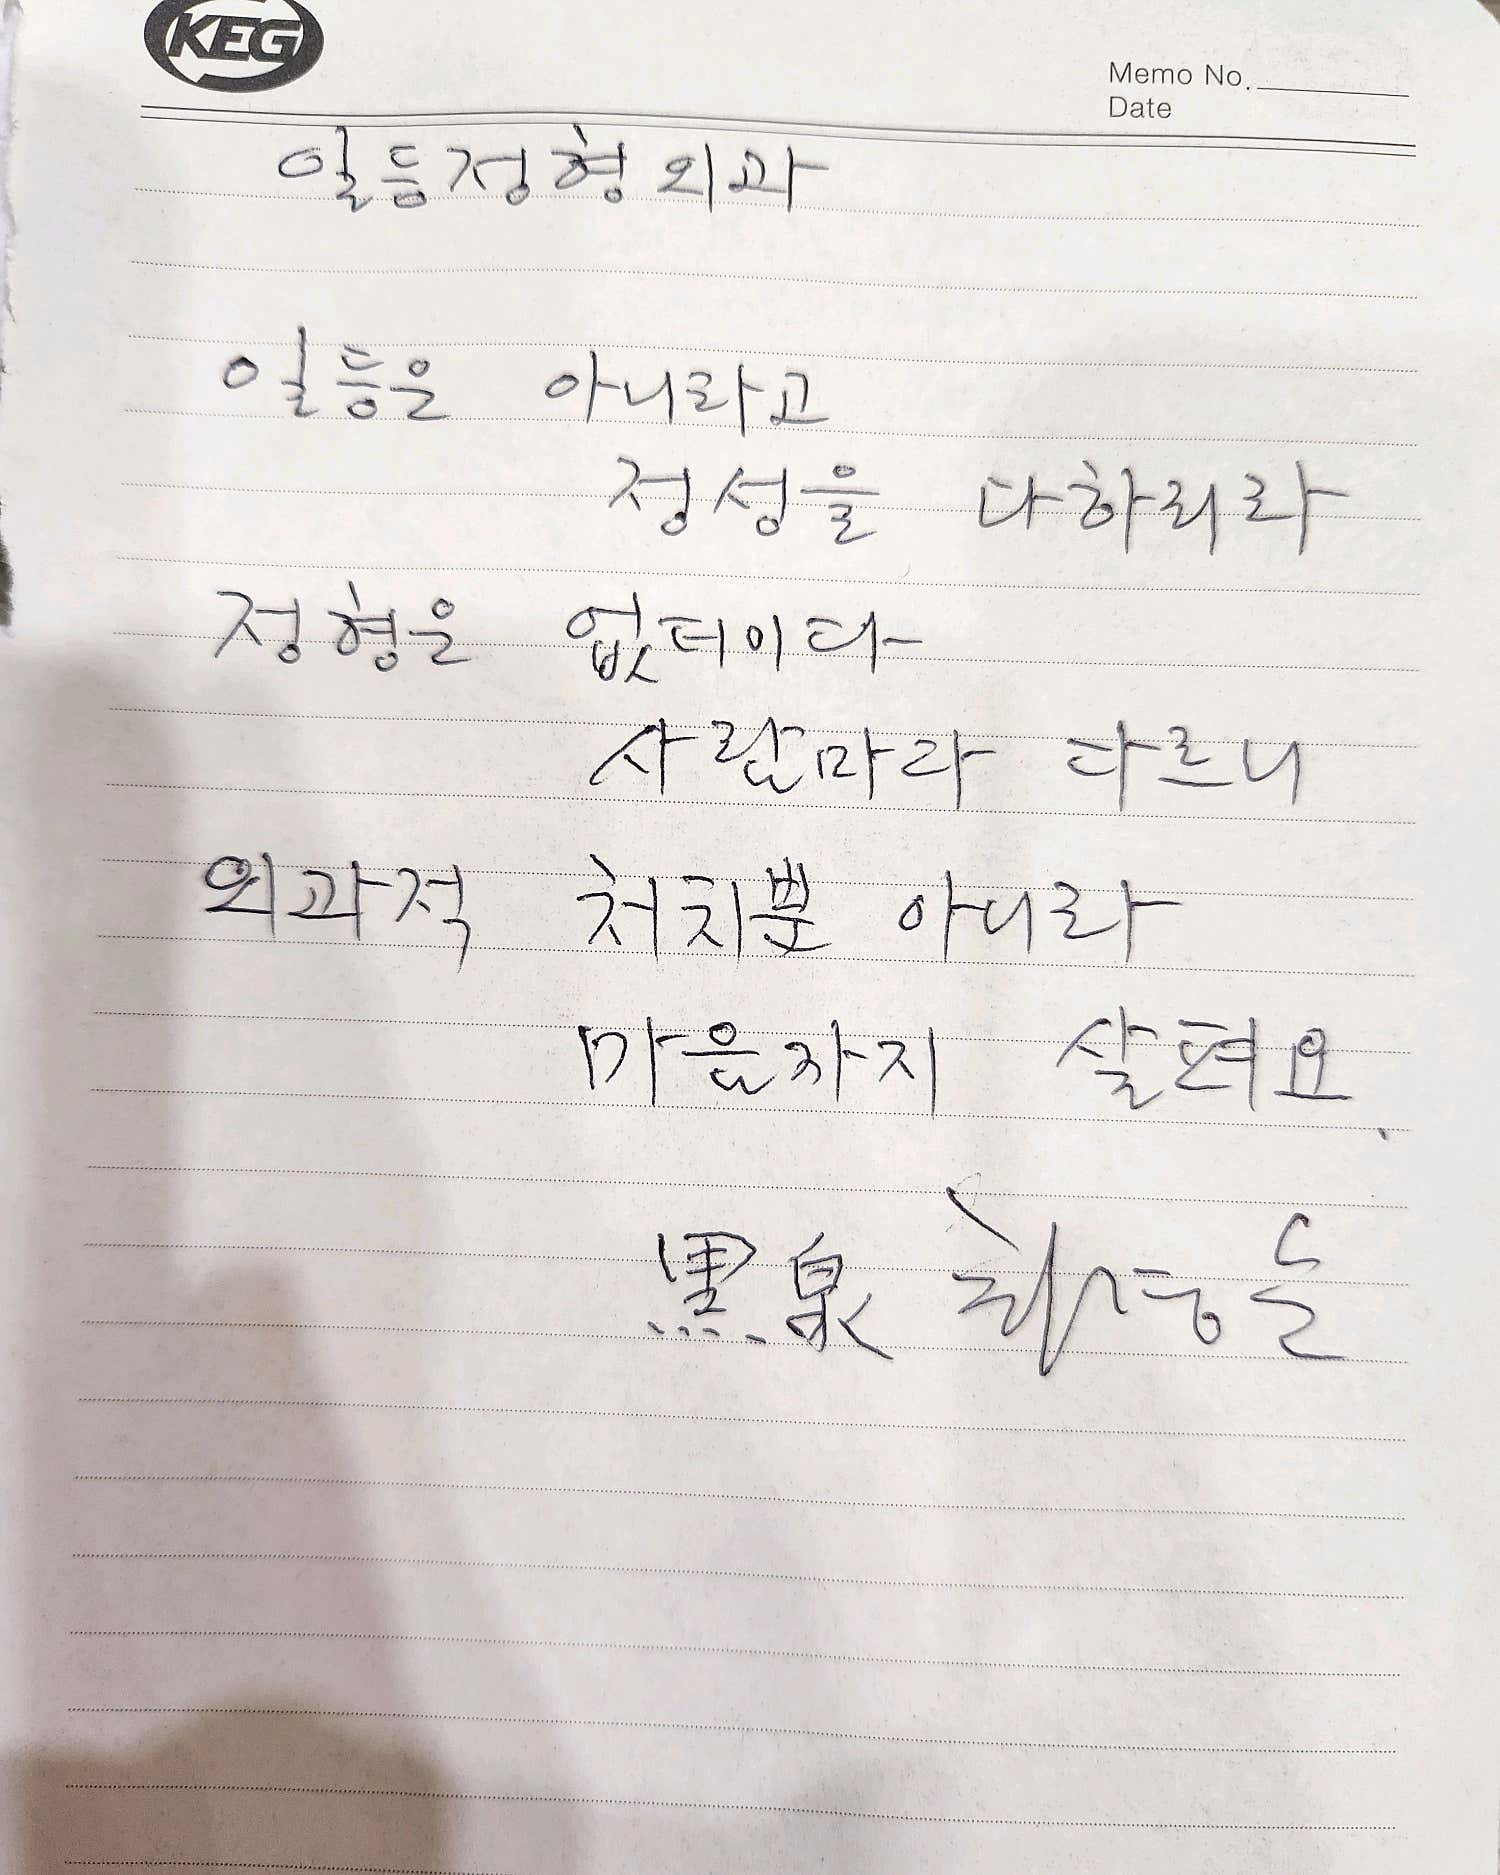 KEG
Memo No.
Date
일등정형외과
일등은 아니라고
정성을 다하리라
정형은 없더이다
사람마다 다르니
외과적 처치뿐 아니라
마음까지 살펴요.
黑泉